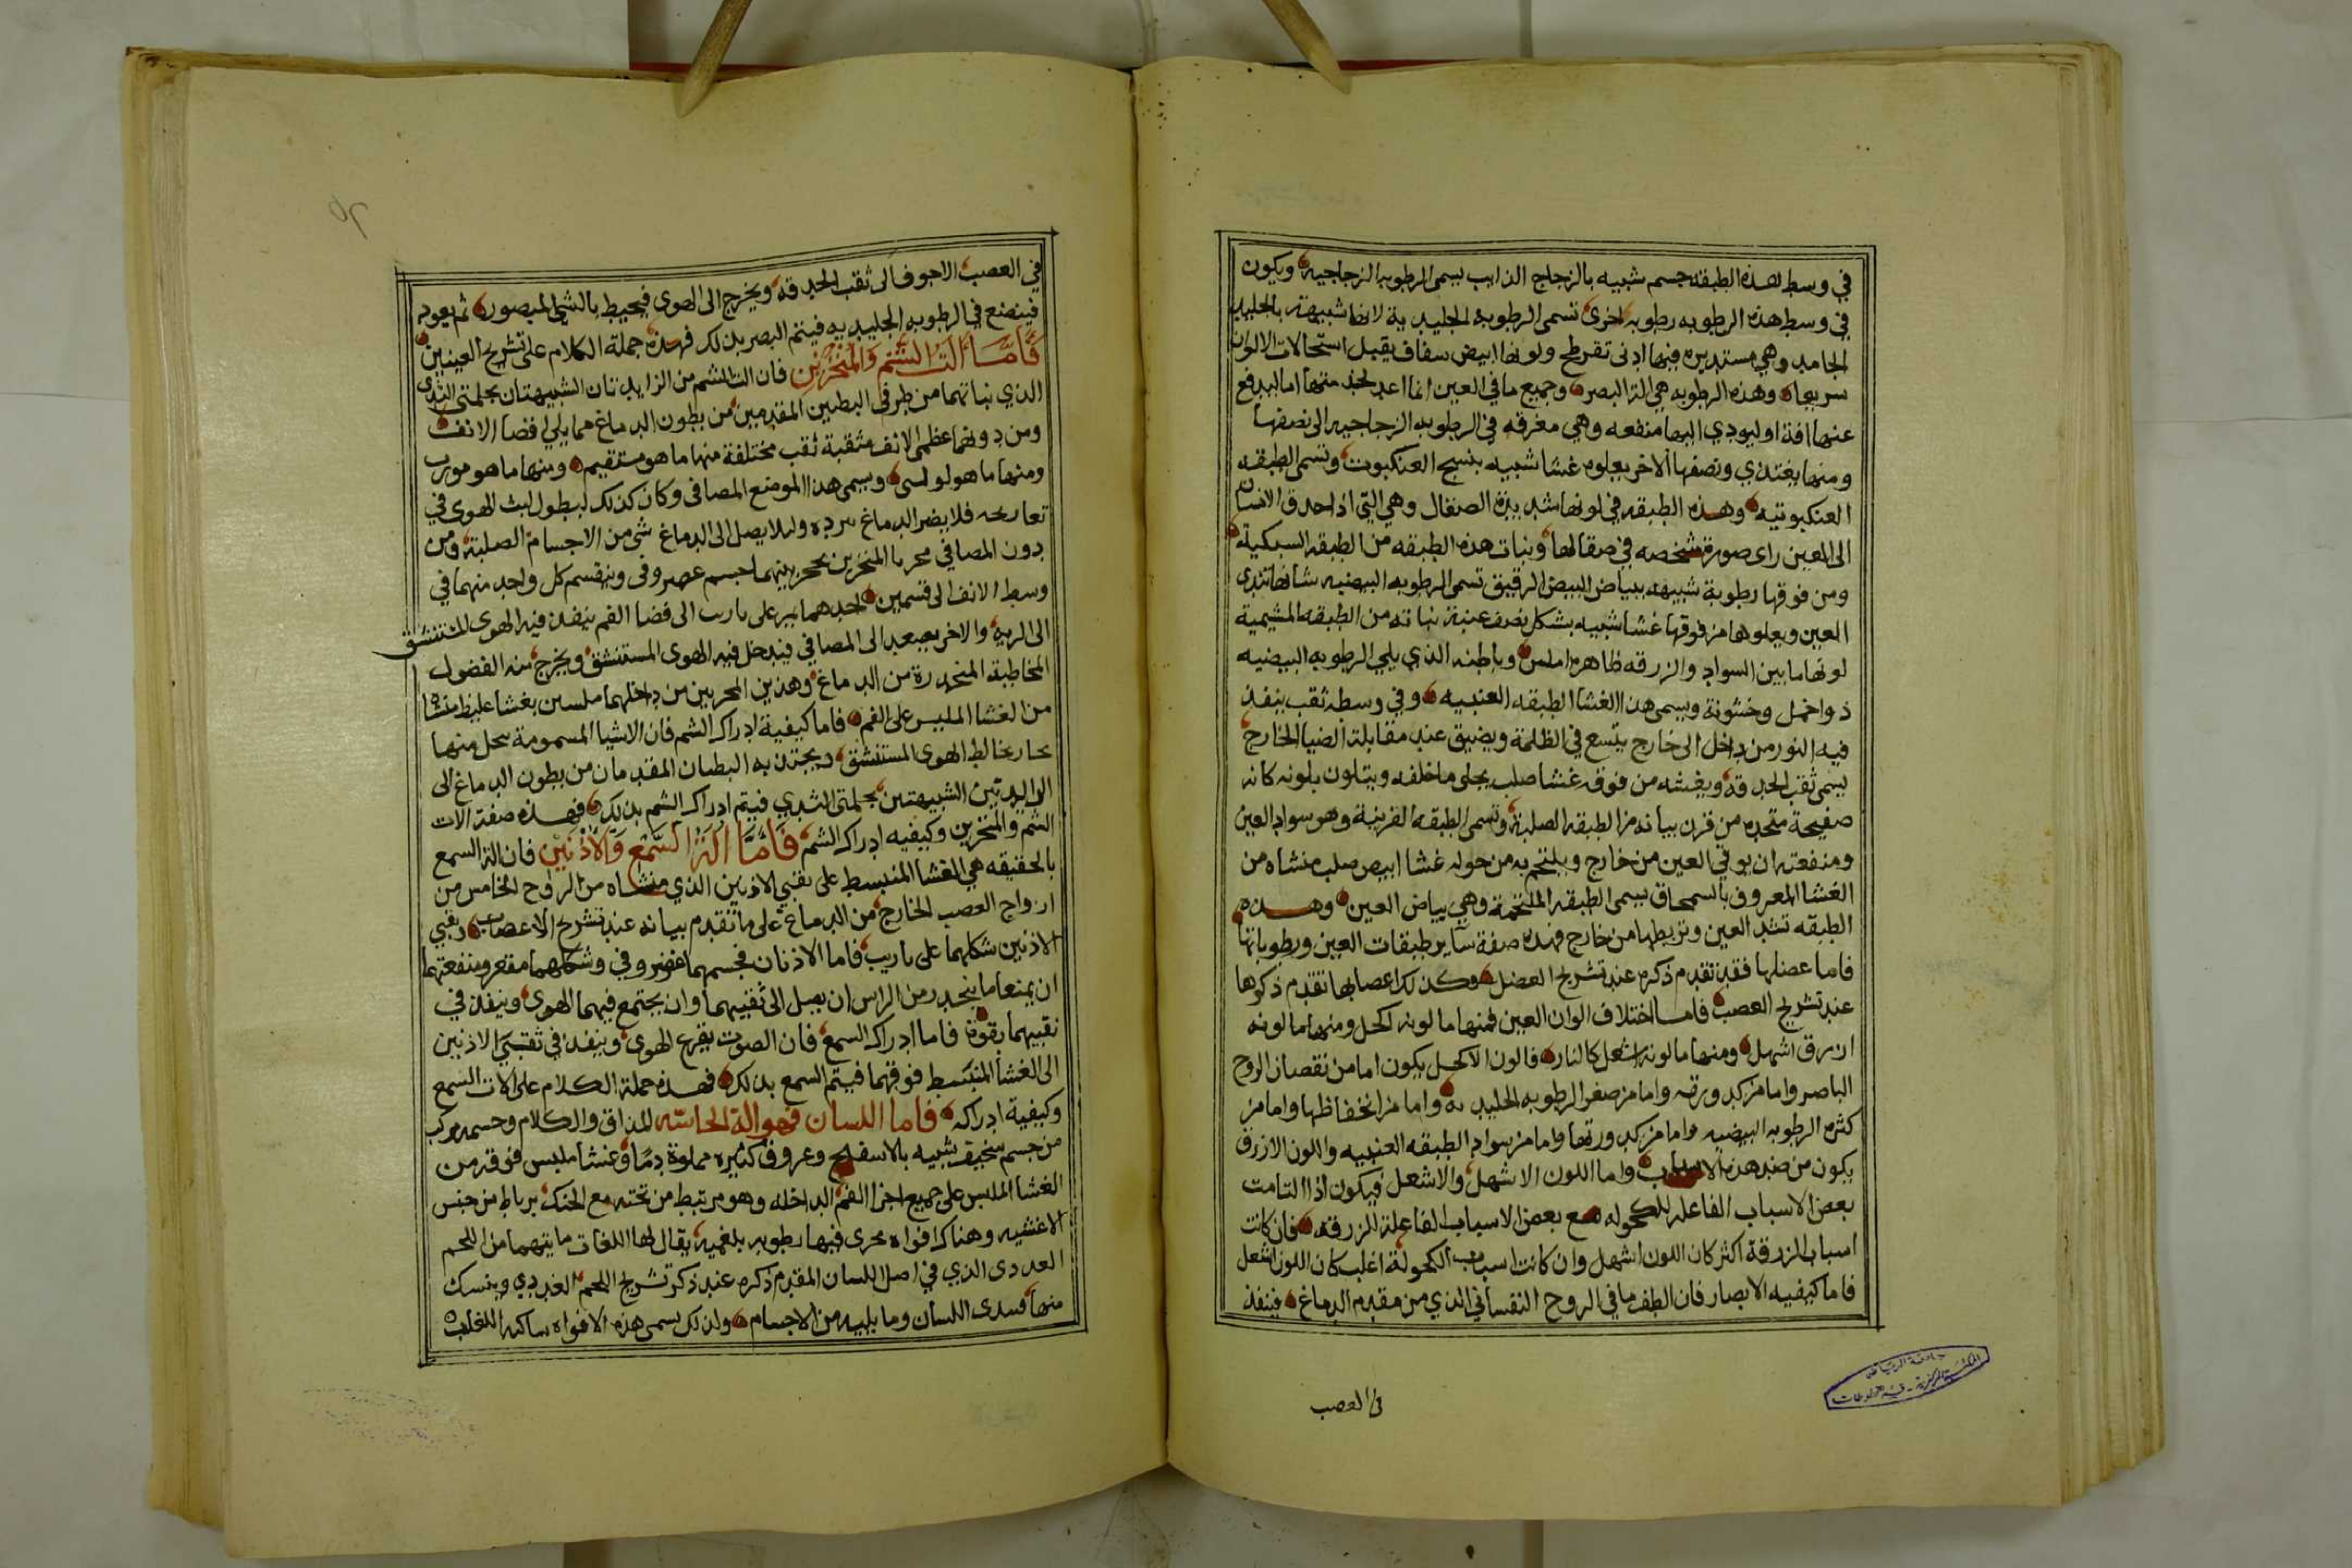 في وسط هذه الطبقه جسم شبيه بالزجاج الذايب يسمى الرطوبه الزجاجيه ويكون
في وسط هذه الرطوبه رطوبه اخرى تسمى الرطوبه الجليدية لانها شبيهة بالجليد
الجامد وهي مستديره فيها ادنى تفرطح ولونها ابيض سفاف يقبل استحالات الالوان
سريعا وهذه الرطوبه هي الة البصر وجميع ما في العين انما اعد لخد منها اما ليدفع
عنها افة او ليودي اليها منفعه وهي مغرقه في الرطوبه الزجاجيه الى نصفها
ومنها يغتذي ونصفها الاخر يعلوه غشا شبيه بنسج العنكبوت وتسمى الطبقه
العنكبوتيه وهذه الطبقه في لونها شديدة الصقال وهي التي اذا احدق الانسان
الى العين راى صورة شخصه في صقالها ونبات هذه الطبقه من الطبقه السبكية
ومن فوقها رطوبة شبيهه ببياض البيض الرقيق تسمى الرطوبه البيضيه شانها تندى
العين ويعلوها من فوقها غشا شبيه بشكل نصف عنبة نباته من الطبقه المشيمية
لونها ما بين السواد والزرقه ظاهره املس وباطنه الذي يلي الرطوبه البيضيه
ذو اخمل وخشونة ويسمى هذا الغشا الطبقه العنبيه وفي وسطه ثقب ينفذ
فيه النور من داخل الى خارج يتسع في الظلمة ويضيق عند مقابلة الضيا الخارج
يسمى ثقب الحدقه ويغشه من فوقه غشا صلب يجلى ما خلفه ويتلون بلونه كانه
صفيحة متخده من قرن بيانه من الطبقه الصلبة وتسمى الطبقه القرنية وهو سواد العين
ومنفعته ان يوقي العين من خارج ويلتحم به من حوله غشا ابيض صلب منشاه من
الغشا المعروف بالسمحاق يسمى الطبقه الملتحمة وهي بياض العين وهذه
الطبقه تشد العين وتربطها من خارج فهذه صفة ساير طبقات العين ورطوباتها
فاما عضلها فقد تقدم ذكره عند تشريح العضل وكذلك اعصابها تقدم ذكرها
عند تشريح العصب فاما اختلاف الوان العين فمنها ما لونه اكحل ومنها ما لونه
ازرق اشهل ومنها ما لونه اشعل كالنار فالون الاكحل يكون اما من نقصان الروح
الباصر واما من كدورته واما من صغر الرطوبه الجليديه واما من انخفاظها واما من
كثره الرطوبه البيضيه واما من كدورتها واما من سواد الطبقه العنبيه واللون الازرق
يكون من ضد هذه الاسباب واما اللون الاشهل والاشعل فيكون اذا التامت
بعض الاسباب الفاعله للكحوله مع بعض الاسباب الفاعلة للزرقه فان كانت
اسباب الزرقة اكثر كان اللون اشهل وان كانت اسباب الكحولة اغلب كان اللون اشعل
فاما كيفيه الابصار فان الطف ما في الروح النفساني الذي من مقدم الدماغ فينفذ
في العصب
في العصب الاجوف الى ثقب الحدقه ويخرج الى الهوى فيحيط بالشي المبصور ثم يعود
فينصنع في الرطوبه الجليديه فيتم البصر بذلك فهذه جملة الكلام على تشريح العينين
فاما الت الشم والمنخرين فان الت الشم من الزايدتان الشبيهتان بحلمتي الثدى
الذي نباتهما من طرفي البطنين المقدمين من بطون الدماغ مما يلي فضا الانف
ومن دونهما عظمي الانف مثقبة ثقب مختلفة منها ما هو مستقيم ومنها ما هو مورب
ومنها ما هو لولسى ويسمى هذا الموضع المصافى وكان كذلك ليطول لبث الهوى في
تعاريجه فلا يضر الدماغ ببرده وليلا يصل الى الدماغ شي من الاجسام الصلبة ومن
دون المصافي مجريا المنخرين يحجز بينهما جسم غضروفى وينقسم كل واحد منهما في
وسط الانف الى قسمين احدهما يمر على تاريب الى فضا الفم ينفذ فيه الهوى المستنشق
الى الرية والاخر يصعد الى المصافي فيدخل فيه الهوى المستنشق ويخرج منه الفضول
المخاطية المنحدرة من الدماغ وهذين المجريين من داخلهما ملبسين بغشا غليظ منشاه
من الغشا الملبس على الفم فاما كيفية ادراك الشم فان الاشيا المسمومة يتحلل منها
بخار يخالط الهوى المستنشق ويجتذبه البطنان المقدمان من بطون الدماغ الى
الزايدتين الشبيهتين بحلمتى الثدي فيتم ادراك الشم بذلك فهذه صفة الات
الشم والمنخرين وكيفيه ادراك الشم فاما الة السمع والاذنين فان الة السمع
بالحقيقه هي الغشا المنبسط على ثقبي الاذنين الذي منشاه من الزوج الخامس من
ازواج العصب الخارج من الدماغ على ما تقدم بيانه عند تشريح الاعصاب وثقبي
الاذنين شكلهما على تاريب فاما الاذنان فجسمهما غضروفي وشكلهما مقعر ومنفعتهما
ان يمنعا ما ينحدر من الراس ان يصل الى ثقبيهما وان يجتمع فيهما الهوى وينفذ في
ثقبيهما بقوة فاما ادراك السمع فان الصوت يقرع الهوى وينفذ في ثقبتي الاذنين
الى الغشا المنبسط فوقهما فيتم السمع بذلك فهذه جملة الكلام على الات السمع
وكيفية ادراكه فاما اللسان فهو الة الحاسة المذاق والكلام وجسمه مركب
من جسم سخيف شبيه بالاسفنج وعروق كثيره مملوة دما وغشا ملبس فوقه من
الغشا الملبس على جميع اجزا الفم الداخله وهو مرتبط من تحته مع الحنك برباط من جنس
الاغشيه وهناك افواه مجرى فيها رطوبه بلغميه يقال لها اللغات ما يتهما من اللحم
الغددى الذي في اصل اللسان المقدم ذكره عند ذكر تشريح اللحم الغددي وينسك
منها فيندى اللسان وما يليه من الاجسام ولذلك يسمى هذه الافواه ساكبه اللعاب